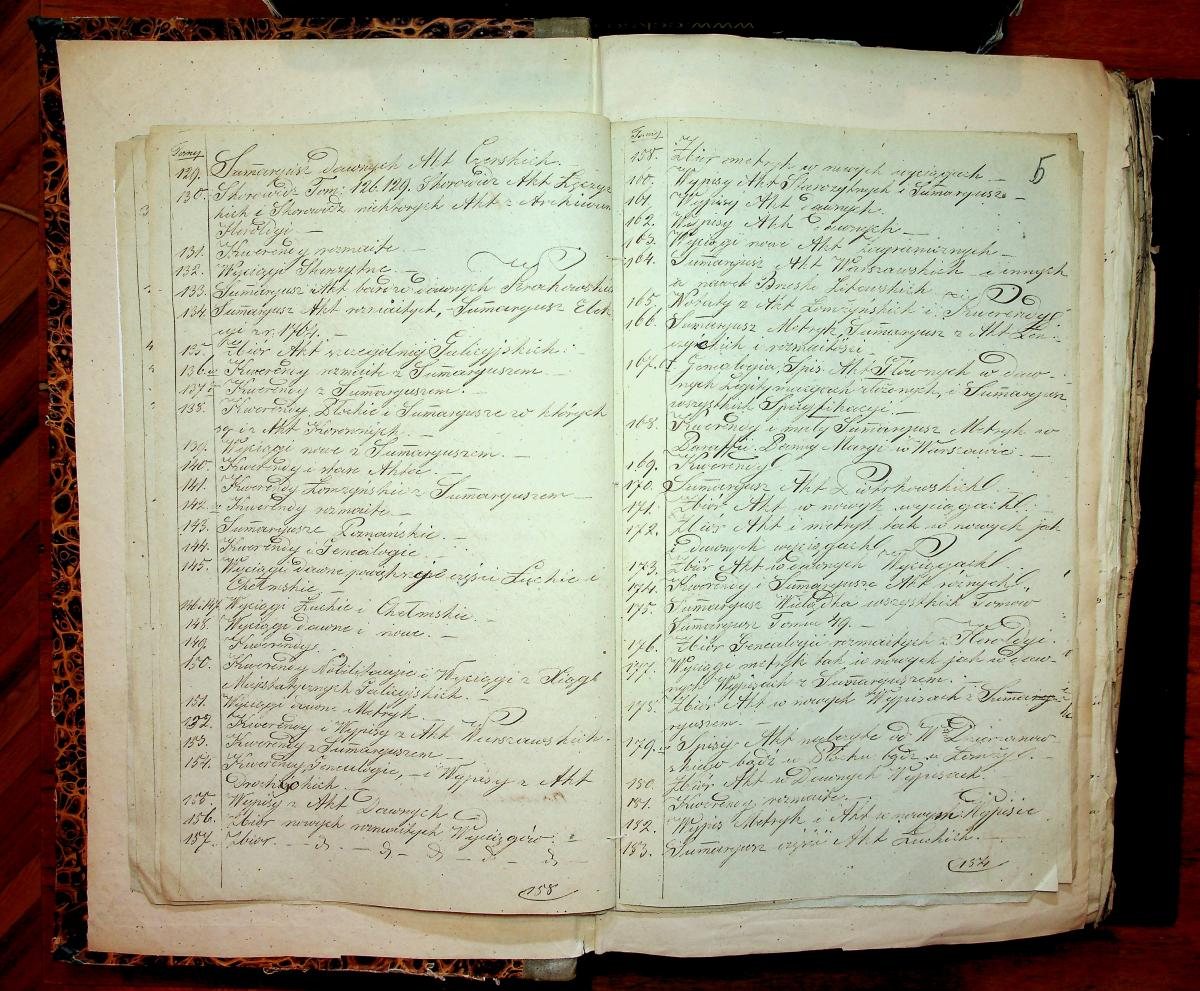 Tomy
129. Summaryusz Dawnych Akt Czerskich. —
130. Skorowidz Tom: 126. 129. Skorowidz Akt Łęczyc
kich i Skorowidz niektórych Akt z Archiwum
Heroldyi —
131. Kwerendy rozmaite —
132. Wyciągi Starożytne —
133. Summaryusz Akt bardzo dawnych Krakowskich
134. Summaryusz Akt rozmaitych, — Summaryusz Elek
cyi z r. 1764. —
135. Zbiór Akt szczególniej Galicyjskich. —
136. Kwerendy rozmaite z Summaryuszem. —
137. Kwerendy z Summaryuszem. —
138. Kwerendy, Płockie i Summaryusze w których
są i z Akt Koronnych. —
139. Wyciągi nowe z Summaryuszem. —
140. Kwerendy i nowe Akta. —
141. Kwerendy Łomżyńskie z Summaryuszem —
142. Kwerendy rozmaite —
143. Summaryusze Poznańskie. —
144. Kwerendy i Genealogie —
145. Wyciągi dawne części Łuckie i
Chełmskie —
146. i 147. Wyciągi Łuckie i Chełmskie. —
148. Wyciągi dawne i nowe. —
149. Kwerendy. —
150. Kwerendy Nobilitacyje i Wyciągi z Xiąg
Galicyjskich. —
151. Wyciągi dawne Metryk —
152. Kwerendy i Wypisy z Akt Warszawskich. —
153. Kwerendy z Summaryuszem —
154. Kwerendy, Genealogie, — i Wypisy z Akt
Drochickich. —
155. Wypisy z Akt Dawnych
156. Zbiór nowych rozmaitych Wyciągów —
157. Zbiór — d — d — d — d — d
158
Tomy
5
158. Zbiór metryk w nowych wyciągach —
160. Wypisy Akt Starożytnych i Summaryusze —
161. Wypisy Akt dawnych
162. Wypisy Akt Dawnych —
163. Wyciągi nowe Akt Zagranicznych —
164. Summaryusz z Akt Warszawskich — i innych
a nawet Brześć Litewskich
165. Wotaty z Akt Łomżyńskich i Kwerendy
166. Summaryusz Metryk, Summaryusz z Akt Łęc-
zyckich i rozmaitości —
167. Genealogia, Spis Akt Głównych w daw-
nych Legitymacyach złożonych, i Summaryusz
wszystkich Specyfikacyi. —
168. Kwerendy i mały Summaryusz Metryk w
Parafii Panny Maryi w Warszawie. —
169. Kwerendy
170. Summaryusz Akt Piotrkowskich —
171. Zbiór Akt w nowych wyciągach —
172. Zbiór Akt i metryk tak w nowych jak
i dawnych wyciągach
173. Zbiór Akt w dawnych Wyciągach
174. Kwerendy i Summaryusze Akt rożnych
175. Summaryusz wszystkich Tomów
Summaryusz Tomu 49. —
176. Zbiór Genealogii rozmaitych z Heroldyi —
177. Wyciągi metryk tak w nowych jak w daw-
nych Wypisach z Summaryuszem. —
178. Zbiór Akt w nowych Wypisach z Summa-
ryuszem —
179. Spisy Akt nabyte od W. Dzierzanow-
skiego bądź w Płocku bądź w Łomży. —
180. Zbiór Akt w Dawnych Wypisach. —
181. Kwerendy rozmaite. —
182. Wypis Metryk i Akt w nowym Wypisie
183. Summaryusz części Akt Łuckich. —
184